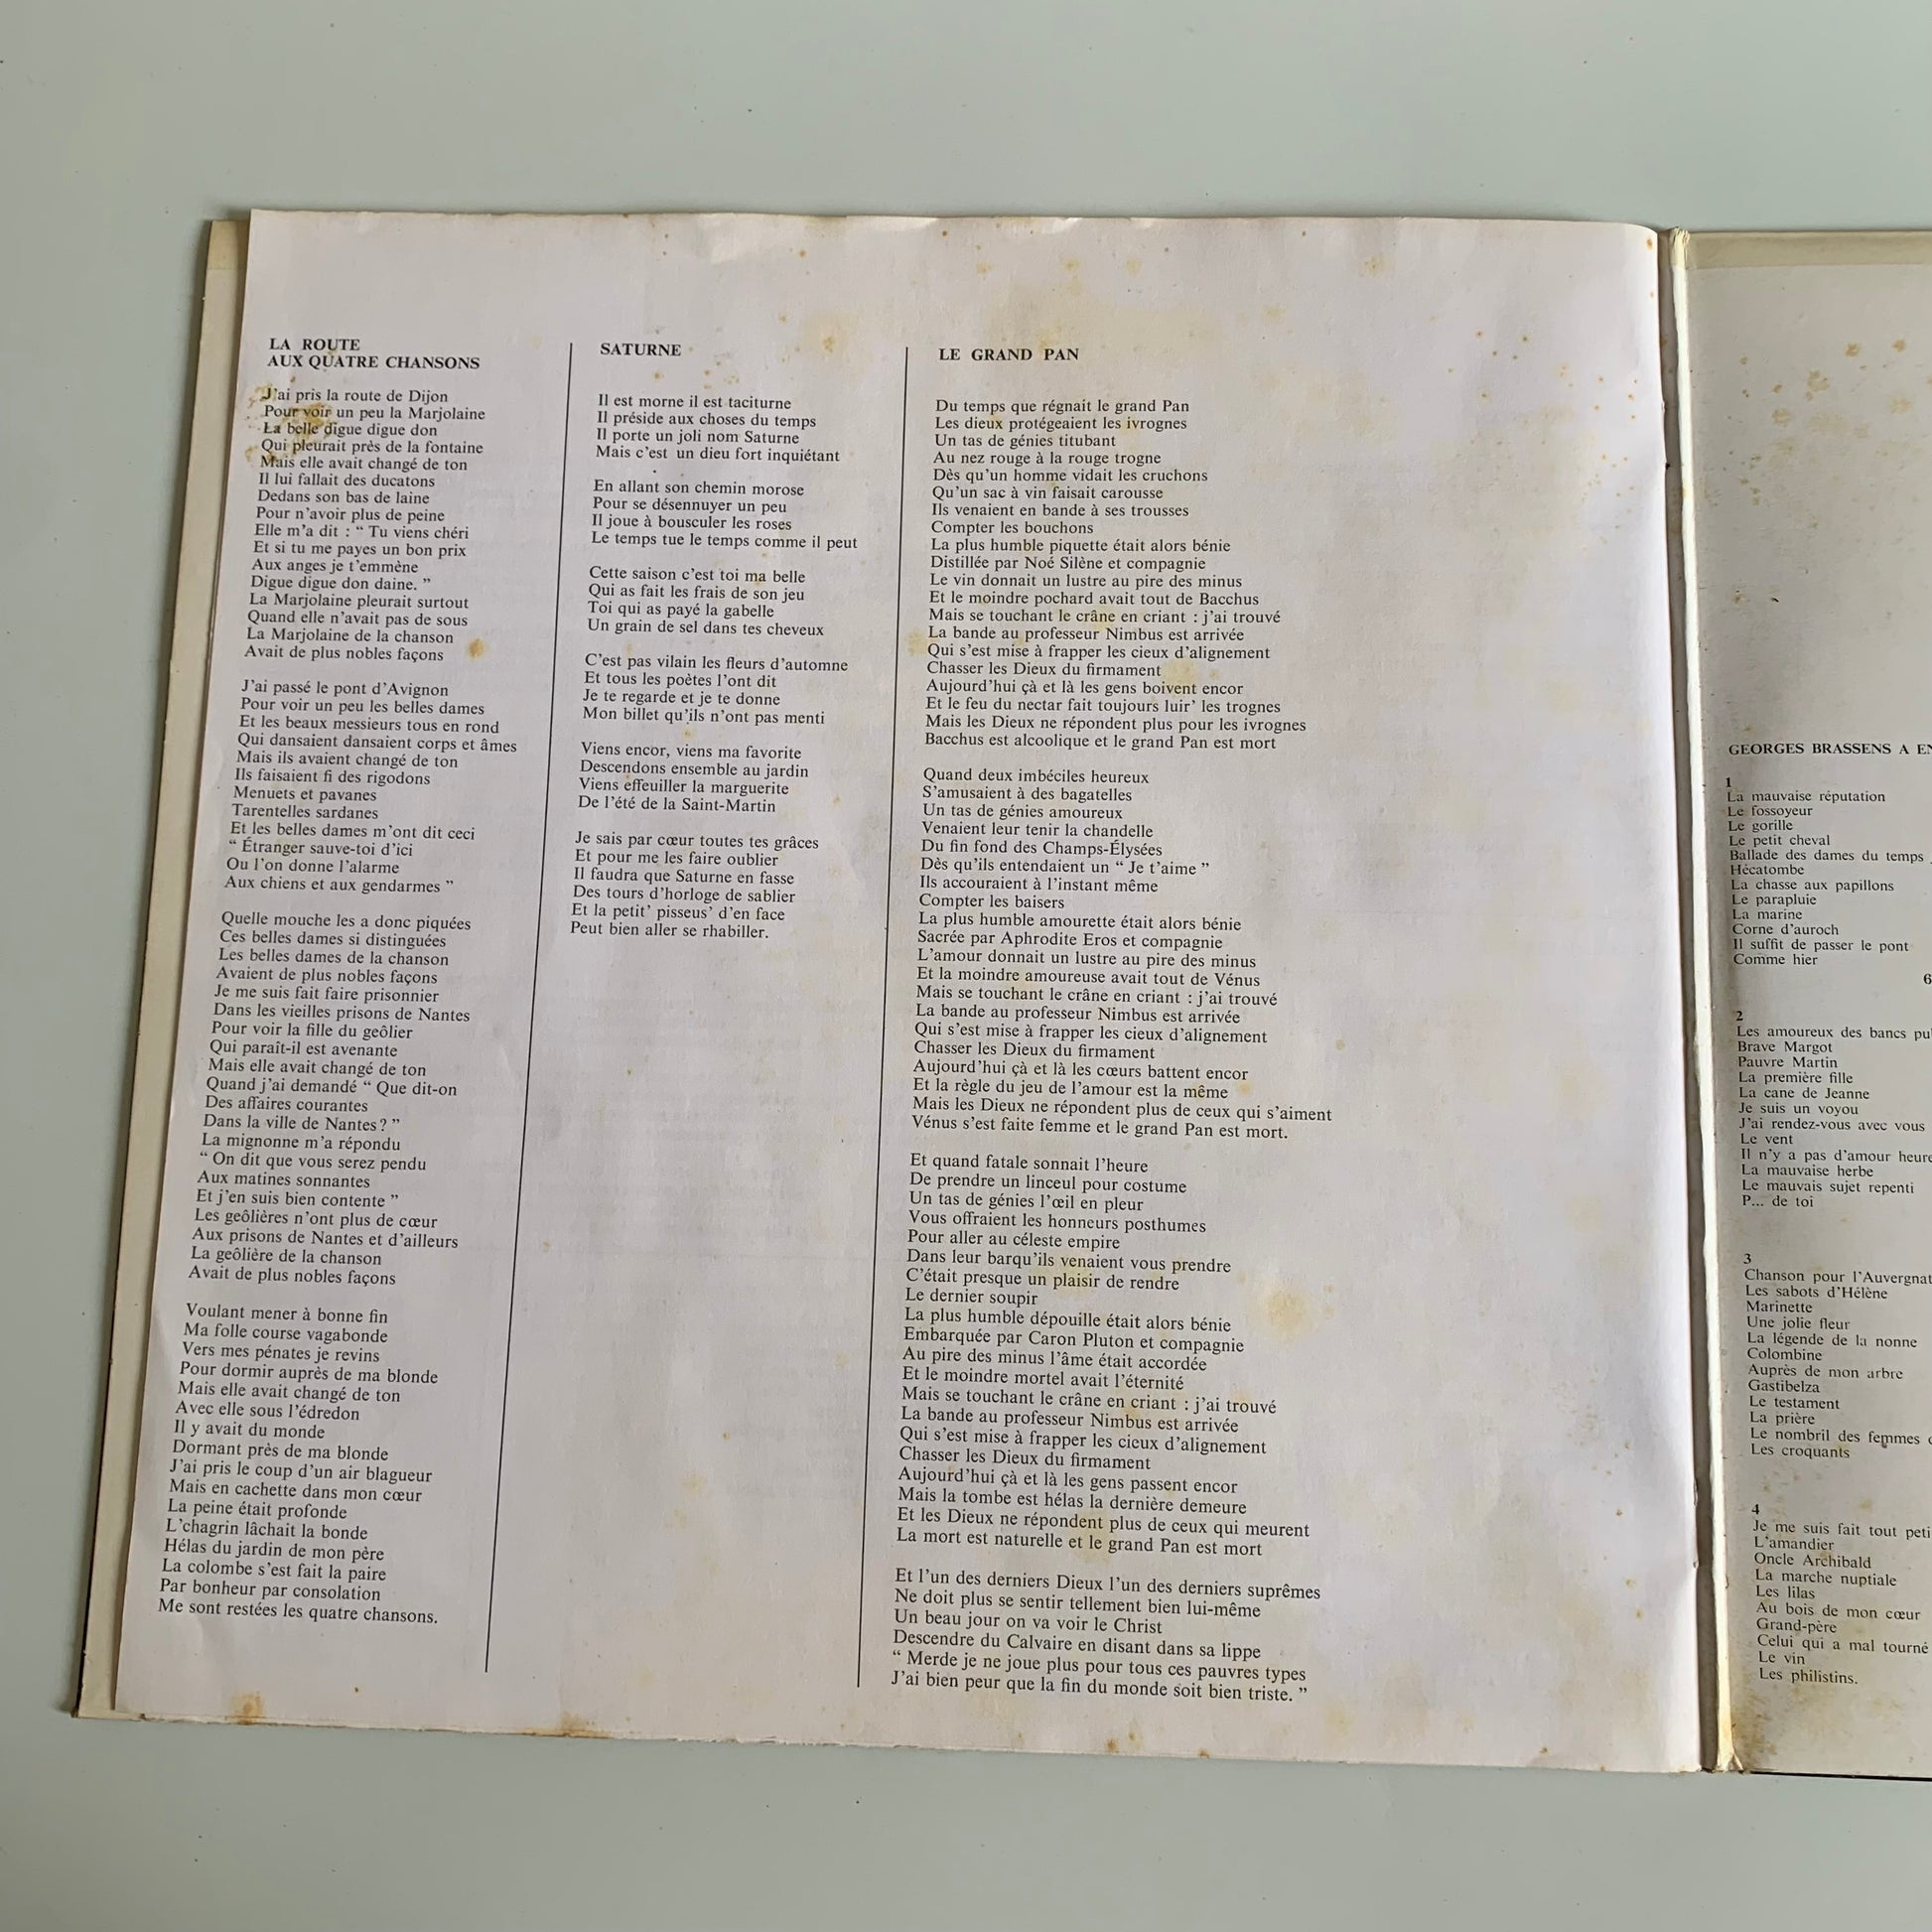 LA ROUTE
AUX QUATRE CHANSONS
J'ai pris la route de Dijon
Pour voir un peu la Marjolaine
La belle digue digue don
Qui pleurait près de la fontaine
Mais elle avait changé de ton
Il lui fallait des ducatons
Dedans son bas de laine
Pour n'avoir plus de peine
Elle m'a dit : “ Tu viens chéri
Et si tu me payes un bon prix
Aux anges je t'emmène
Digue digue don daine. ”
La Marjolaine pleurait surtout
Quand elle n'avait pas de sous
La Marjolaine de la chanson
Avait de plus nobles façons
J'ai passé le pont d'Avignon
Pour voir un peu les belles dames
Et les beaux messieurs tous en rond
Qui dansaient dansaient corps et âmes
Mais ils avaient changé de ton
Ils faisaient fi des rigodons
Menuets et pavanes
Tarentelles sardanes
Et les belles dames m'ont dit ceci
“ Étranger sauve-toi d'ici
Ou l'on donne l'alarme
Aux chiens et aux gendarmes ”
Quelle mouche les a donc piquées
Ces belles dames si distinguées
Les belles dames de la chanson
Avaient de plus nobles façons
Je me suis fait faire prisonnier
Dans les vieilles prisons de Nantes
Pour voir la fille du geôlier
Qui paraît-il est avenante
Mais elle avait changé de ton
Quand j'ai demandé “ Que dit-on
Des affaires courantes
Dans la ville de Nantes ? ”
La mignonne m'a répondu
“ On dit que vous serez pendu
Aux matines sonnantes
Et j'en suis bien contente ”
Les geôlières n'ont plus de cœur
Aux prisons de Nantes et d'ailleurs
La geôlière de la chanson
Avait de plus nobles façons
Voulant mener à bonne fin
Ma folle course vagabonde
Vers mes pénates je revins
Pour dormir auprès de ma blonde
Mais elle avait changé de ton
Avec elle sous l'édredon
Il y avait du monde
Dormant près de ma blonde
J'ai pris le coup d'un air blagueur
Mais en cachette dans mon cœur
La peine était profonde
L'chagrin lâchait la bonde
Hélas du jardin de mon père
La colombe s'est fait la paire
Par bonheur par consolation
Me sont restées les quatre chansons.
SATURNE
Il est morne il est taciturne
Il préside aux choses du temps
Il porte un joli nom Saturne
Mais c'est un dieu fort inquiétant
En allant son chemin morose
Pour se désennuyer un peu
Il joue à bousculer les roses
Le temps tue le temps comme il peut
Cette saison c'est toi ma belle
Qui as fait les frais de son jeu
Toi qui as payé la gabelle
Un grain de sel dans tes cheveux
C'est pas vilain les fleurs d'automne
Et tous les poètes l'ont dit
Je te regarde et je te donne
Mon billet qu'ils n'ont pas menti
Viens encor, viens ma favorite
Descendons ensemble au jardin
Viens effeuiller la marguerite
De l'été de la Saint-Martin
Je sais par cœur toutes tes grâces
Et pour me les faire oublier
Il faudra que Saturne en fasse
Des tours d'horloge de sablier
Et la petit' pisseus' d'en face
Peut bien aller se rhabiller.
LE GRAND PAN
Du temps que régnait le grand Pan
Les dieux protégeaient les ivrognes
Un tas de génies titubant
Au nez rouge à la rouge trogne
Dès qu'un homme vidait les cruchons
Qu'un sac à vin faisait carousse
Ils venaient en bande à ses trousses
Compter les bouchons
La plus humble piquette était alors bénie
Distillée par Noé Silène et compagnie
Le vin donnait un lustre au pire des minus
Et le moindre pochard avait tout de Bacchus
Mais se touchant le crâne en criant : j'ai trouvé
La bande au professeur Nimbus est arrivée
Qui s'est mise à frapper les cieux d'alignement
Chasser les Dieux du firmament
Aujourd'hui çà et là les gens boivent encor
Et le feu du nectar fait toujours luir' les trognes
Mais les Dieux ne répondent plus pour les ivrognes
Bacchus est alcoolique et le grand Pan est mort
Quand deux imbéciles heureux
S'amusaient à des bagatelles
Un tas de génies amoureux
Venaient leur tenir la chandelle
Du fin fond des Champs-Élysées
Dès qu'ils entendaient un “ Je t'aime ”
Ils accouraient à l'instant même
Compter les baisers
La plus humble amourette était alors bénie
Sacrée par Aphrodite Eros et compagnie
L'amour donnait un lustre au pire des minus
Et la moindre amoureuse avait tout de Vénus
Mais se touchant le crâne en criant : j'ai trouvé
La bande au professeur Nimbus est arrivée
Qui s'est mise à frapper les cieux d'alignement
Chasser les Dieux du firmament
Aujourd'hui çà et là les cœurs battent encor
Et la règle du jeu de l'amour est la même
Mais les Dieux ne répondent plus de ceux qui s'aiment
Vénus s'est faite femme et le grand Pan est mort.
Et quand fatale sonnait l'heure
De prendre un linceul pour costume
Un tas de génies l'œil en pleur
Vous offraient les honneurs posthumes
Pour aller au céleste empire
Dans leur barqu'ils venaient vous prendre
C'était presque un plaisir de rendre
Le dernier soupir
La plus humble dépouille était alors bénie
Embarquée par Caron Pluton et compagnie
Au pire des minus l'âme était accordée
Et le moindre mortel avait l'éternité
Mais se touchant le crâne en criant : j'ai trouvé
La bande au professeur Nimbus est arrivée
Qui s'est mise à frapper les cieux d'alignement
Chasser les Dieux du firmament
Aujourd'hui çà et là les gens passent encor
Mais la tombe est hélas la dernière demeure
Et les Dieux ne répondent plus de ceux qui meurent
La mort est naturelle et le grand Pan est mort
Et l'un des derniers Dieux l'un des derniers suprêmes
Ne doit plus se sentir tellement bien lui-même
Un beau jour on va voir le Christ
Descendre du Calvaire en disant dans sa lippe
“ Merde je ne joue plus pour tous ces pauvres types
J'ai bien peur que la fin du monde soit bien triste. ”
GEORGES BRASSENS A
1
La mauvaise réputation
Le fossoyeur
Le gorille
Le petit cheval
Ballade des dames du temps
Hécatombe
La chasse aux papillons
Le parapluie
La marine
Corne d'auroch
Il suffit de passer le pont
Comme hier
6
2
Les amoureux des bancs
Brave Margot
Pauvre Martin
La première fille
La cane de Jeanne
Je suis un voyou
J'ai rendez-vous avec vous
Le vent
Il n'y a pas d'amour
La mauvaise herbe
Le mauvais sujet repenti
P... de toi
3
Chanson pour l'Auvergnat
Les sabots d'Hélène
Marinette
Une jolie fleur
La légende de la nonne
Colombine
Auprès de mon arbre
Gastibelza
Le testament
La prière
Le nombril des femmes
Les croquants
4
Je me suis fait tout
L'amandier
Oncle Archibald
La marche nuptiale
Les lilas
Au bois de mon cœur
Grand-père
Celui qui a mal tourné
Le vin
Les philistins.